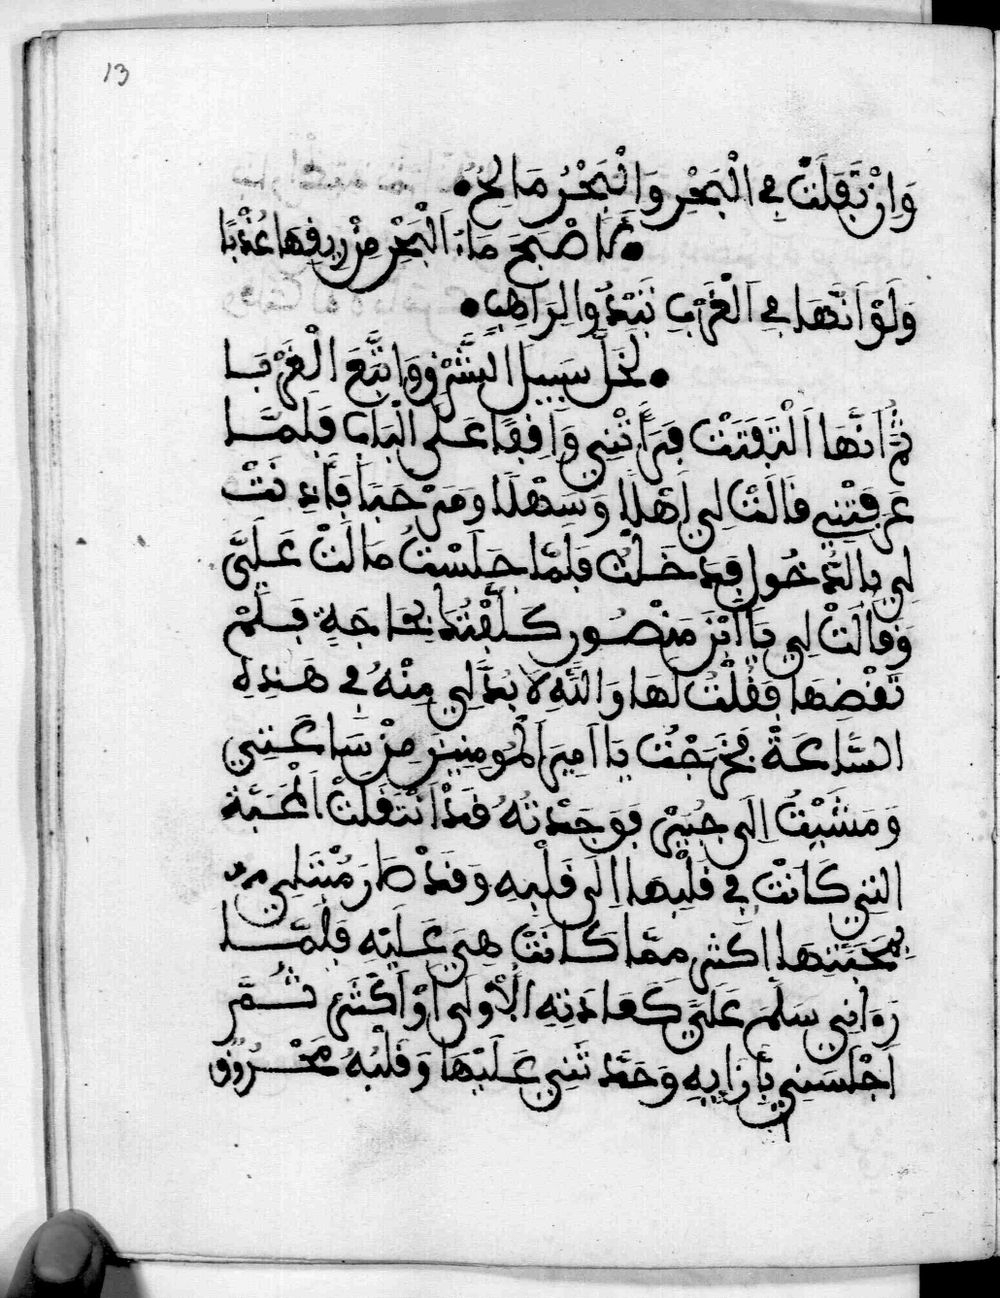 13
وَإِنْ تَفَلَتْ فِي الْبَحْرِ وَالْبَحْرُ مَالِحٌ •
• لَأَصْبَحَ مَاءُ الْبَحْرِ مِنْ رِيفِهَا عُذْبًا
وَلَوْ أَنَّهَا فِي الْغَرْبِ تَبْدُوا لِرَاهِبٍ •
• لَخَلَّ سَبِيلَ الشَّرْقِ وَاتَّبَعَ الْغَرْبَا
ثُمَّ أَنَّهَا الْتَفَتَتْ فَرَأَتْنِي وَافِفًا عَلَى الْبَابِ فَلَمَّا
عَرَفَتْنِي فَالَتْ لِي أَهْلًا وَسَهْلًا وَمَرْحَبَا فَأَذِنَتْ
لِي بِالدُّخُولِ فَدَخَلْتُ فَلَمَّا جَلَسْتُ مَالَتْ عَلَيَّ
وَفَالَتْ لِي يَا ابْنَ مَنْصُورٍ كَلَّفْتُكَ بِحَاجَةٍ فَلَمْ
تَفْضِهَا فَفُلْتُ لَهَا وَاللَّهِ لَا بُدَّ لِي مِنْهُ فِي هَذِهِ
السَّاعَةِ فَخَرَجْتُ يَا أَمِيرَ الْمُومِنِينَ مِنْ سَاعَتِي
وَمَشَيْتُ إِلَى جُبَيْرٍ فَوَجَدْتُهُ فَدْ انْتَفَلَتْ الْمَحَبَّة
التي كَانَتْ فِي فَلْبِهَا إِلَى فَلْبِهِ وَفَدْ صَارَ مُبْتَلِي مِن
مَحَبَّتِهَا أَكْثَر مِمَّا كَانَتْ هِيَ عَلَيْهِ فَلَمَّا
رَءَانِي سَلَّمَ عَلَيَّ كَعَادَتِهِ الْأُولَى أَوْ أَكْثَرُ ثُمَّ
أَجْلَسَنِي بِأَزَايِهِ وَحَدَّثَنِي عَلَيْهَا وَفَلْبُهُ مَحْرُوفٌ